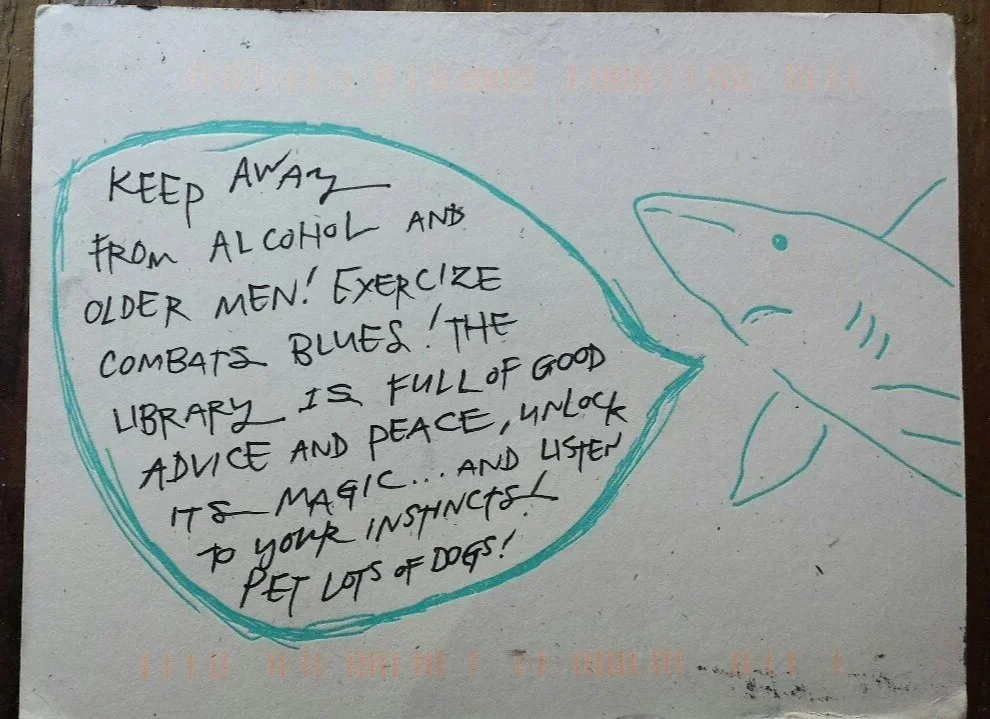 KEEP AWAY
FROM ALCOHOL AND
OLDER MEN! EXERCIZE
COMBATS BLUES! THE
LIBRARY IS FULL OF GOOD
ADVICE AND PEACE, UNLOCK
ITS MAGIC... AND LISTEN
TO YOUR INSTINCTS!
PET LOTS OF DOGS!